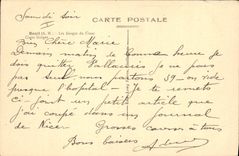 Samedi Soir
CARTE POSTALE
Bien Chère Marie
Demain matin de bonne heure je
dois quitter Vallauris je ne pars
pas seul nous partons 39 on vide
presque l'hopital - Je te remets
ci joint un petit article que
j'ai coupé dans un journal
de Nice. Grosses caresses à tous
Bons baisers